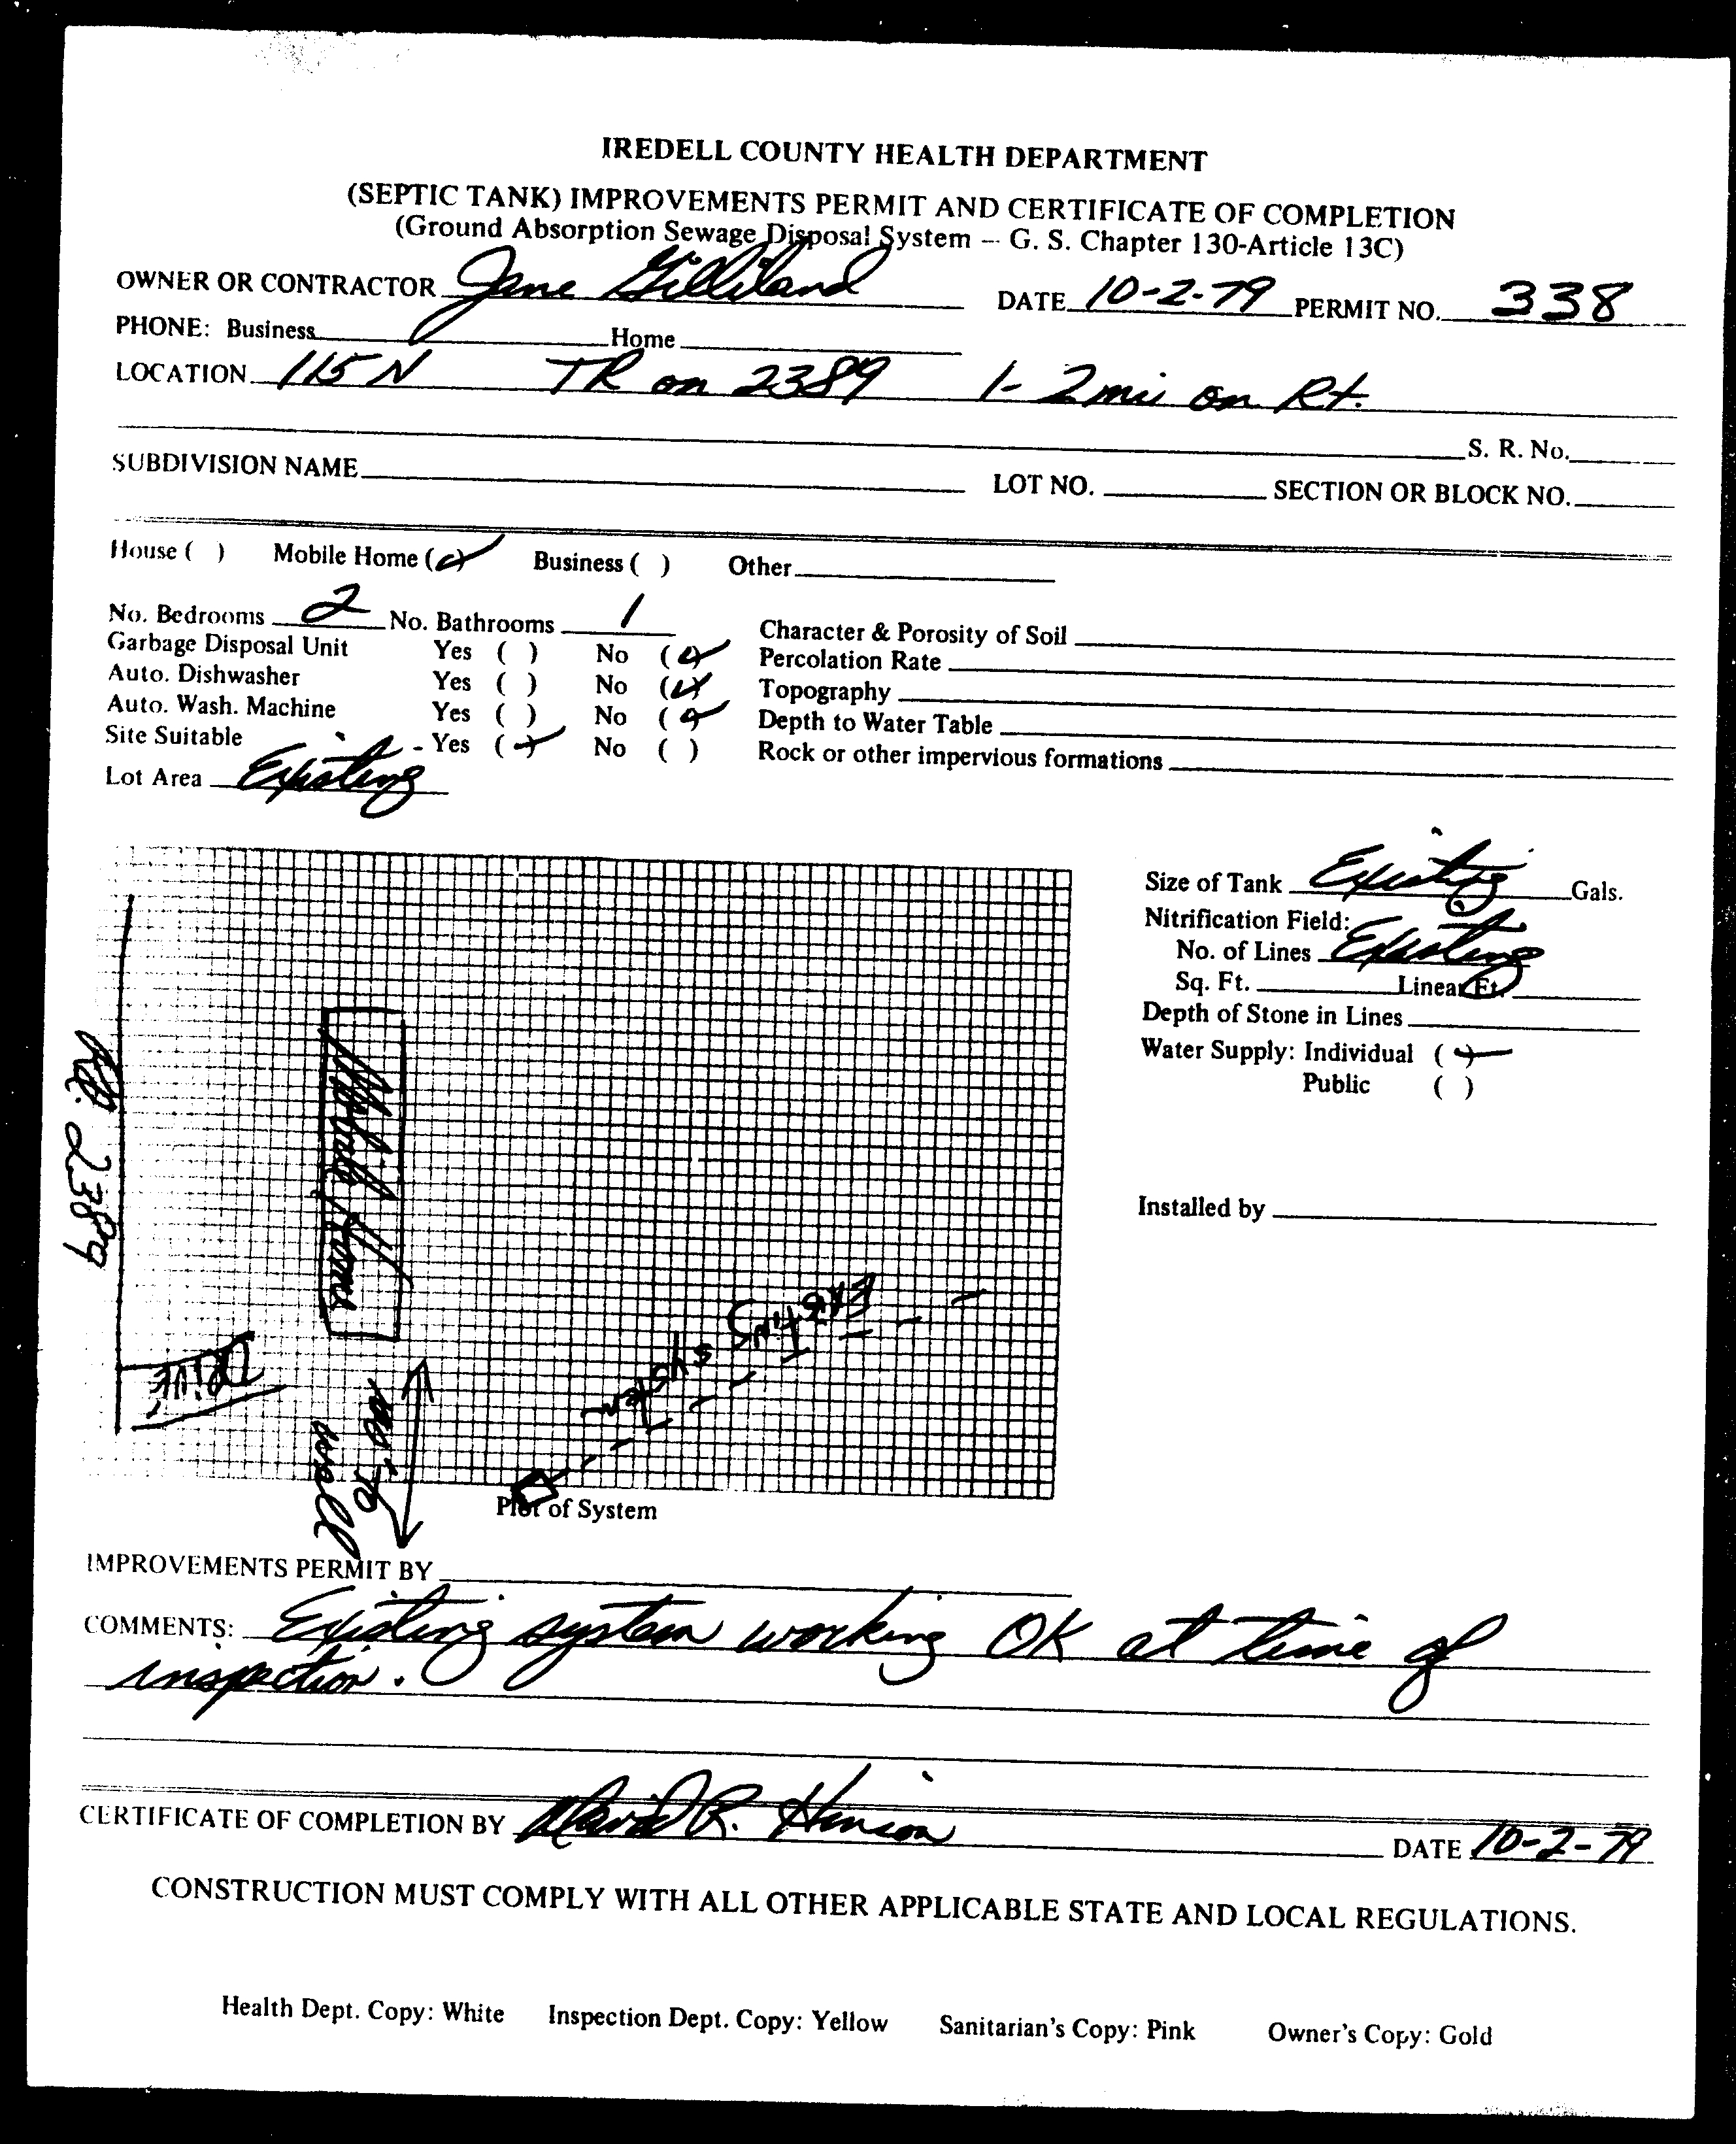 IREDELL COUNTY HEALTH DEPARTMENT
(SEPTIC TANK) IMPROVEMENTS PERMIT AND CERTIFICATE OF COMPLETION
(Ground Absorption Sewage Disposal System -- G. S. Chapter 130-Article 13C)
OWNER OR CONTRACTOR Jane Gilliland DATE 10-2-79 PERMIT NO. 338
PHONE: Business Home
LOCATION 115 N TR on 2389 1- 2 mi on Rt.
S. R. No.
SUBDIVISION NAME LOT NO. SECTION OR BLOCK NO.
House ( ) Mobile Home (✓) Business ( ) Other
No. Bedrooms 2 No. Bathrooms 1 Character & Porosity of Soil
Garbage Disposal Unit Yes ( ) No (✓) Percolation Rate
Auto. Dishwasher Yes ( ) No (✓) Topography
Auto. Wash. Machine Yes ( ) No (✓) Depth to Water Table
Site Suitable - Yes (✓) No ( ) Rock or other impervious formations
Lot Area Existing
Size of Tank Existing Gals.
Nitrification Field:
No. of Lines Existing
Sq. Ft. Linear Ft.
Depth of Stone in Lines
Water Supply: Individual (✓)
Public ( )
Installed by
Rd. 2389
Mobile Home
Drive
100' to
well
Existing system
Plot of System
IMPROVEMENTS PERMIT BY
COMMENTS: Existing system working OK at time of
inspection.
CERTIFICATE OF COMPLETION BY David R. Hinson DATE 10-2-79
CONSTRUCTION MUST COMPLY WITH ALL OTHER APPLICABLE STATE AND LOCAL REGULATIONS.
Health Dept. Copy: White Inspection Dept. Copy: Yellow Sanitarian's Copy: Pink Owner's Copy: Gold